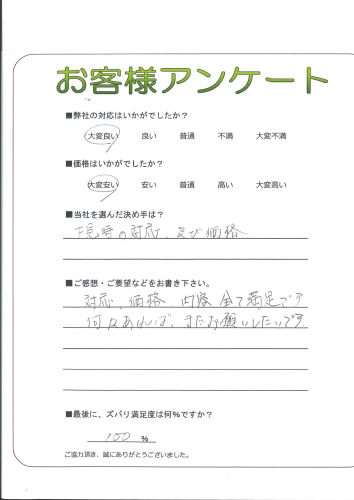 お客様アンケート
■弊社の対応はいかがでしたか?
大変良い 良い 普通 不満 大変不満
■価格はいかがでしたか?
大変安い 安い 普通 高い 大変高い
■当社を選んだ決め手は?
下見時の対応、及び価格
■ご感想・ご要望などをお書き下さい。
対応、価格、内容、全て満足です
何かあれば、またお願いしたいです。
■最後に、ズバリ満足度は何%ですか?
100 %
ご協力頂き、誠にありがとうございました。